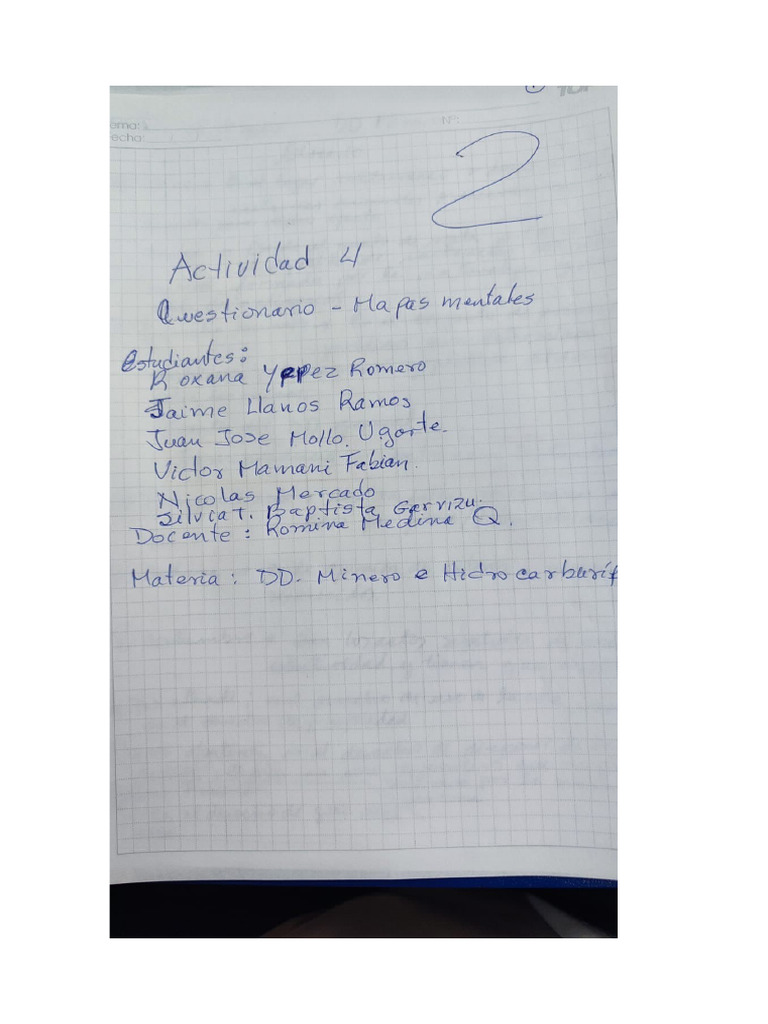 Nº:
echa:
2
Actividad 4
Questionario - Mapas mentales
Estudiantes:
Roxana Yepez Romero
Jaime Llanos Ramos
Juan Jose Mollo. Ugarte.
Victor Mamani Fabian.
Nicolas Mercado
Silvia T. Baptista Garvizu.
Docente: Romina Medina Q.
Materia: DD. Minero e Hidrocarburíf